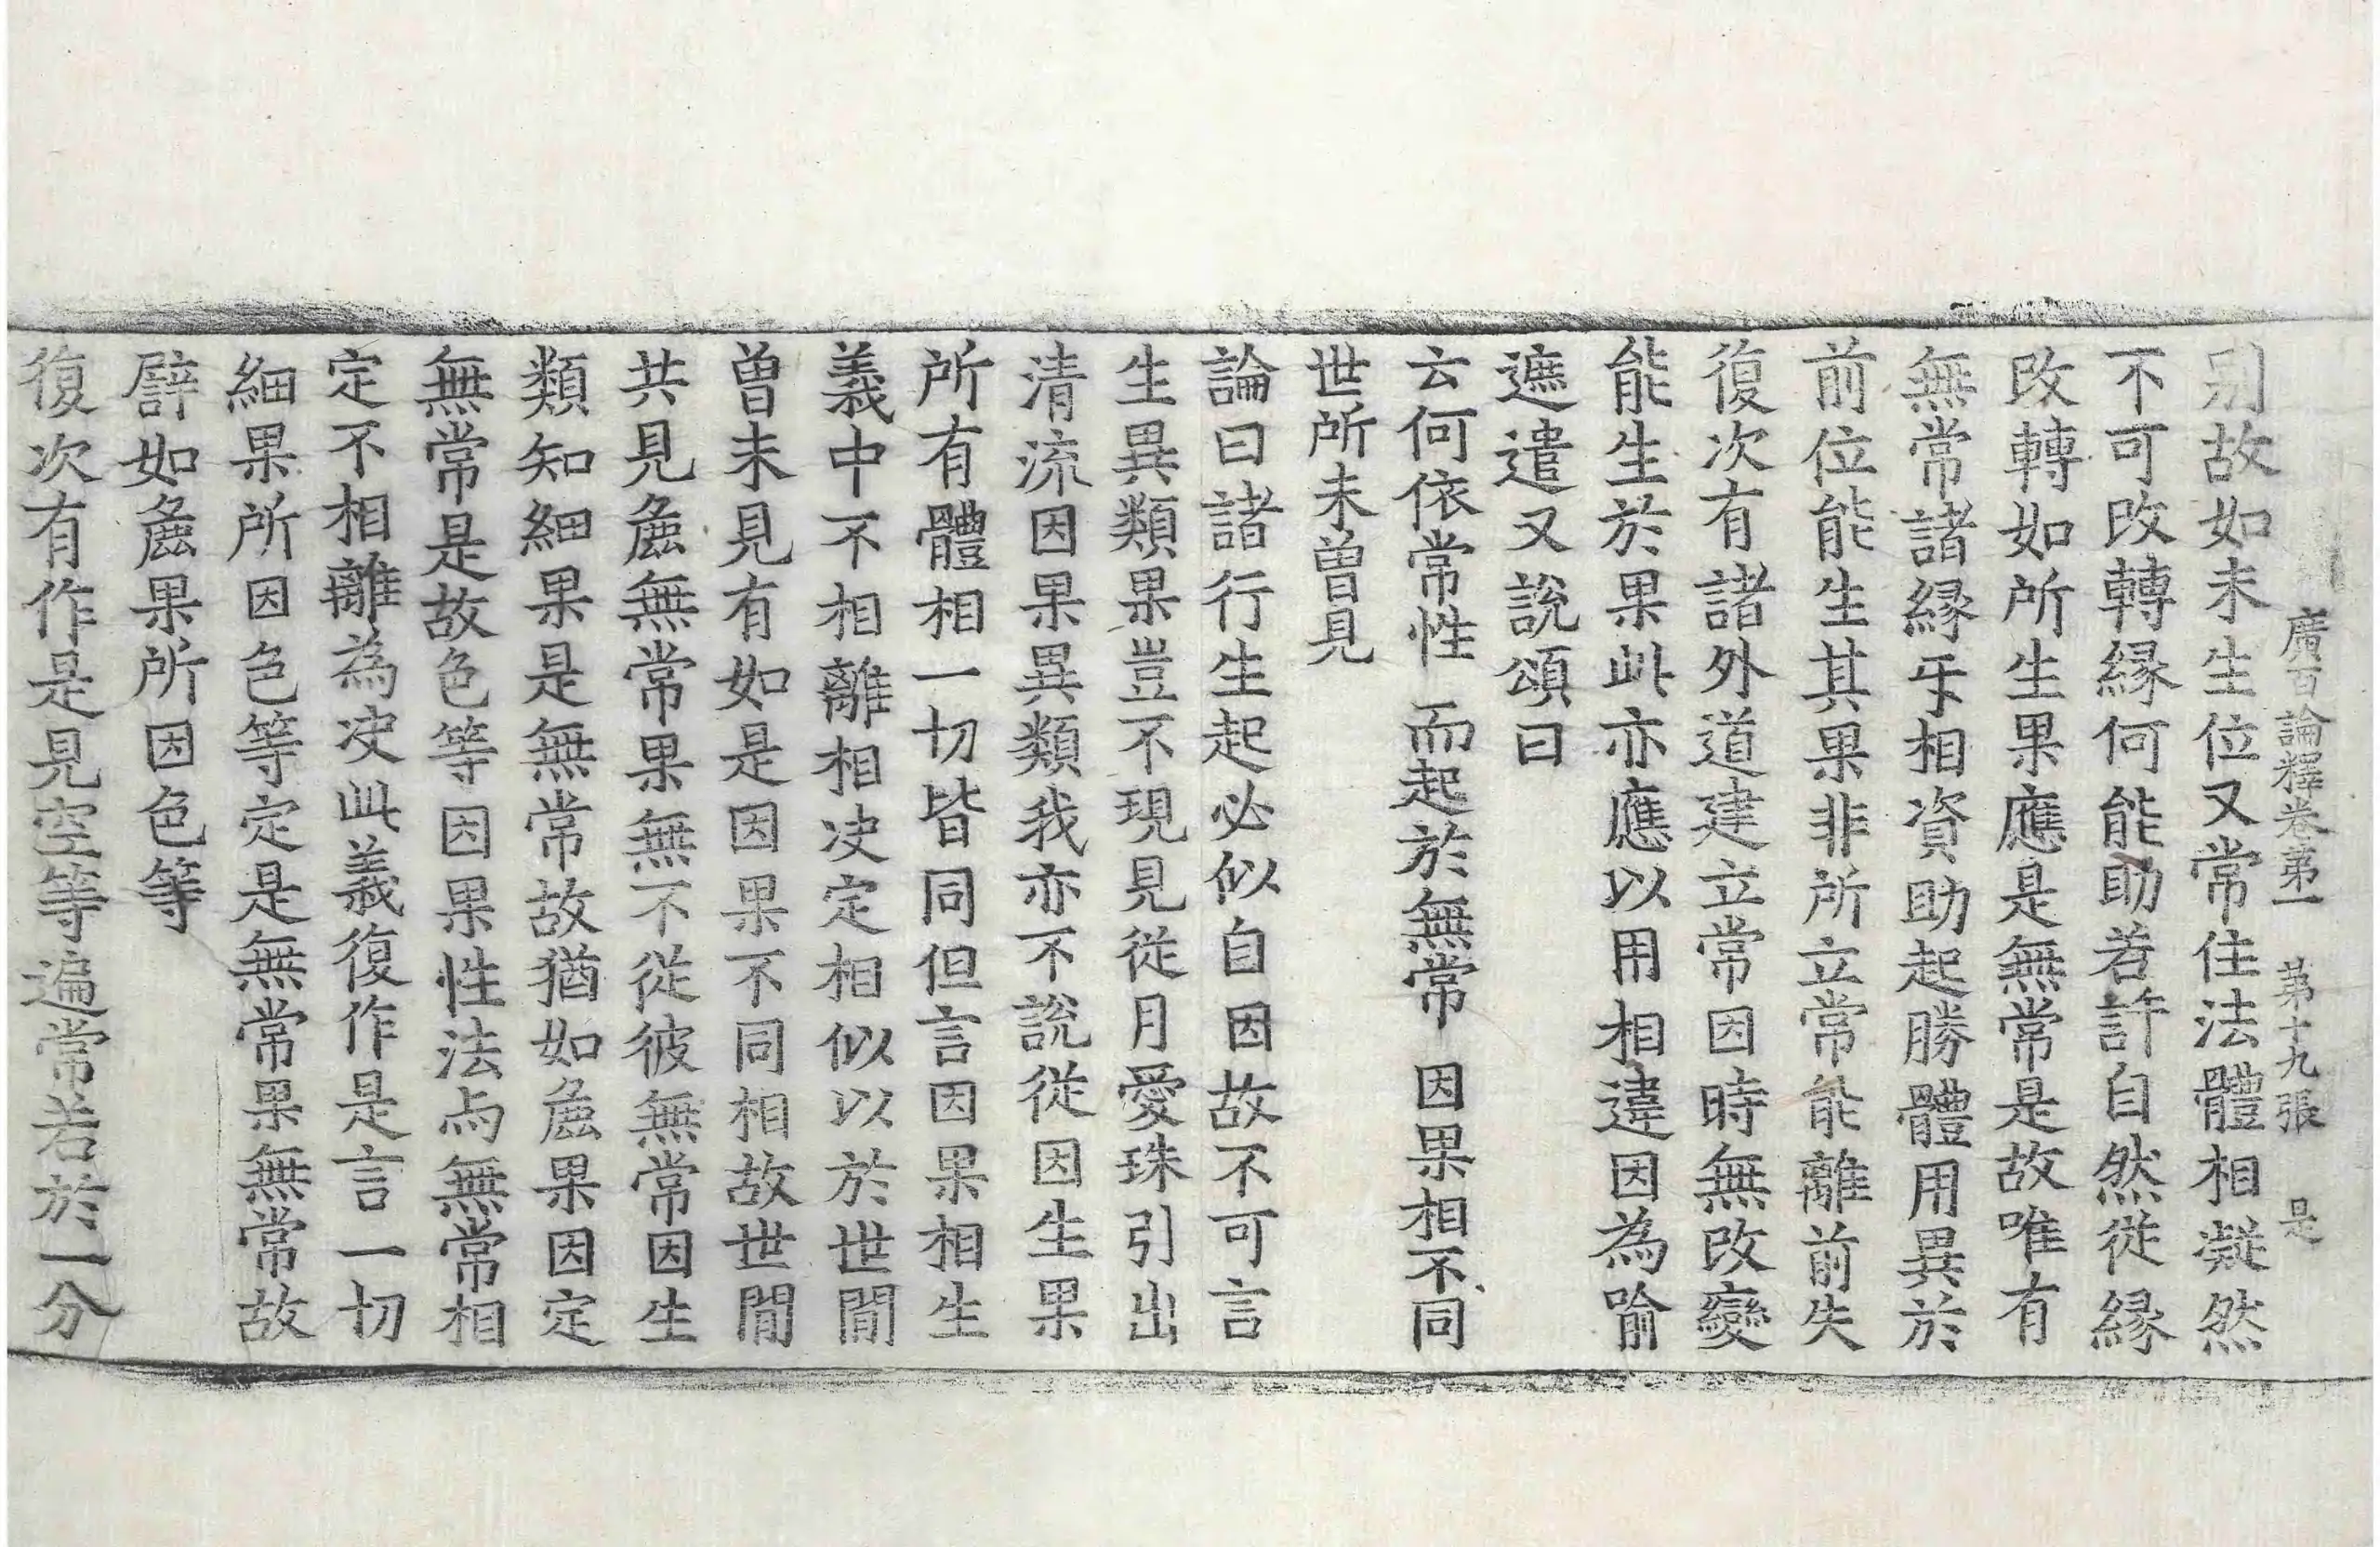 廣百論釋卷第一 第十九張 是
別故如未生位又常住法體相凝然
不可改轉緣何能助若許自然從緣
改轉如所生果應是無常是故唯有
無常諸緣㸦相資助起勝體用異於
前位能生其果非所立常能離前失
復次有諸外道建立常因時無改變
能生於果此亦應以用相違因為喻
遮遣又說頌曰
云何依常性 而起於無常 因果相不同
世所未曾見
論曰諸行生起必似自因故不可言
生異類果豈不現見從月愛珠引出
清流因果異類我亦不說從因生果
所有體相一切皆同但言因果相生
義中不相離相决定相似以於世間
曾未見有如是因果不同相故世間
共見麁無常果無不從彼無常因生
類知細果是無常故猶如麁果因定
無常是故色等因果性法与無常相
定不相離為决此義復作是言一切
細果所因色等定是無常果無常故
譬如麁果所因色等
復次有作是見空等遍常若於一分